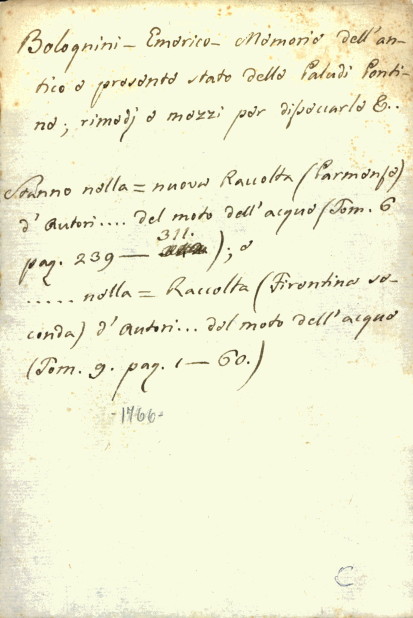 Bolognini - Emerico - Memorie dell'an-
tico e presente stato delle Paludi Ponti-
ne; rimedj e mezzi per diseccarle &..
Stanno nella = nuova Raccolta (Parmense)
d'Autori.... del moto dell'acque (Tom. 6
311.
pag. 239 — ); e
..... nella = Raccolta (Fiorentina se-
conda) d'Autori... del moto dell'acque
(Tom. 9. pag. 1 — 60.)
-1766-
C